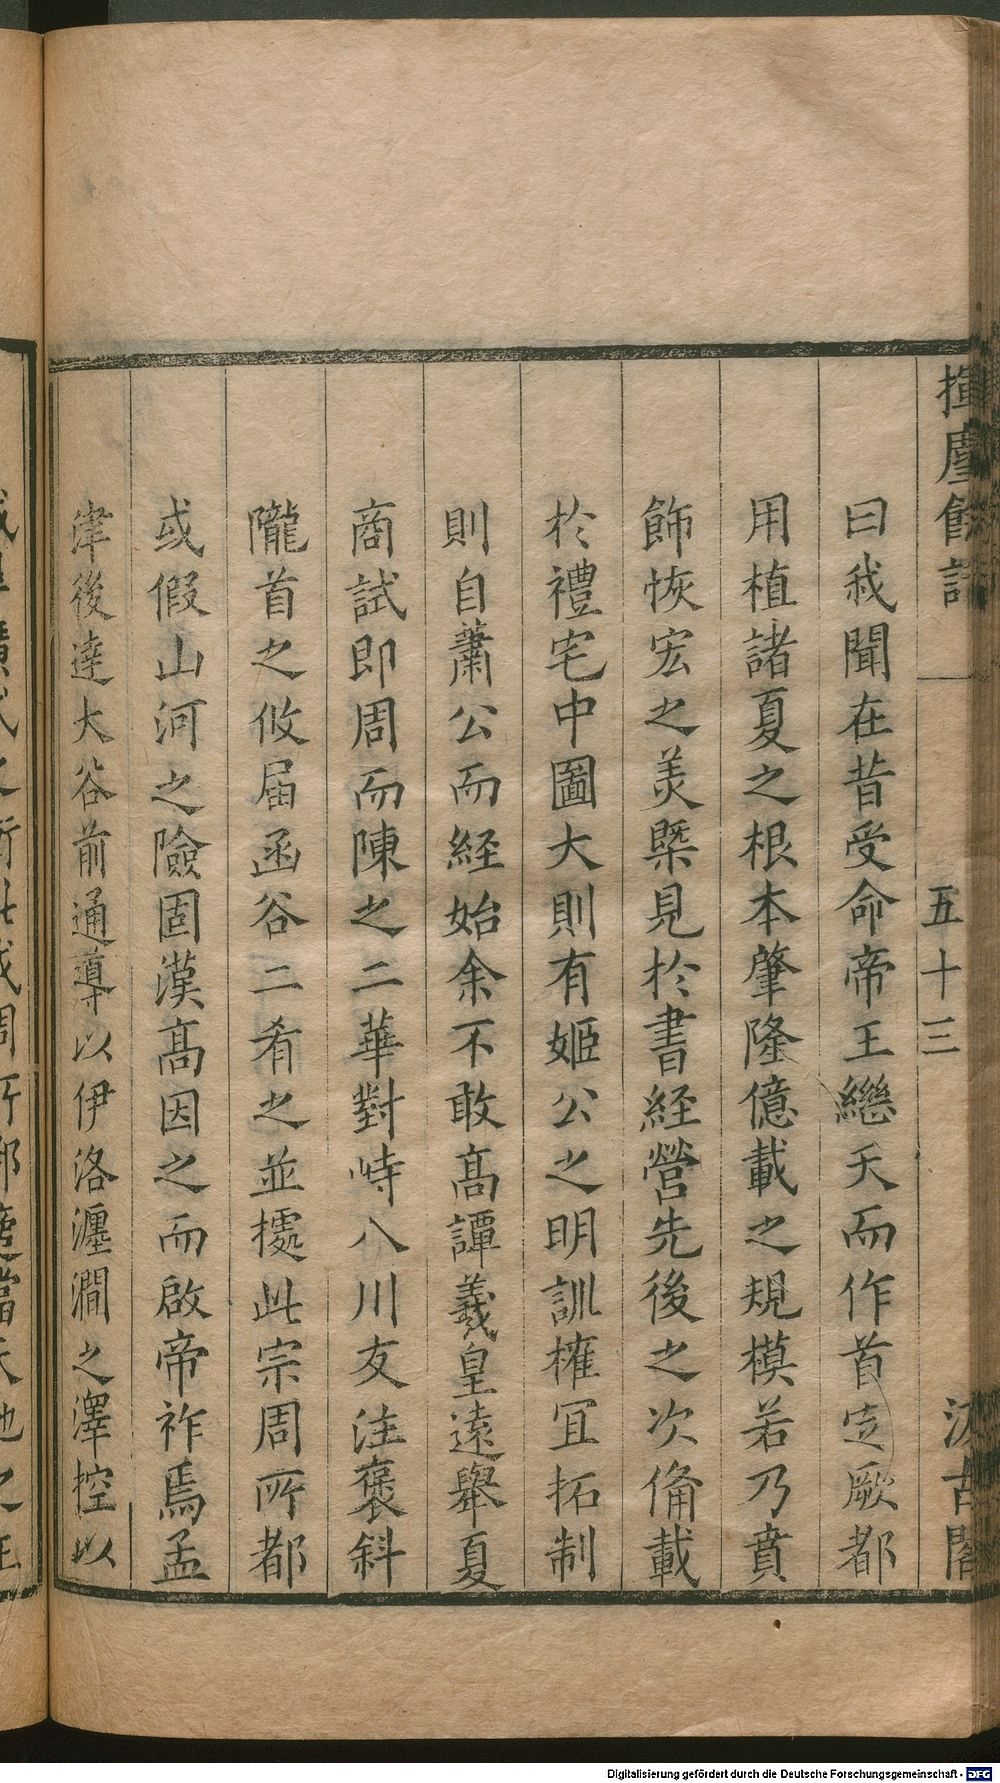 揮麈餘話
五十三
汲古閣
曰我聞在昔受命帝王繼天而作首定厥都
用植諸夏之根本肇隆億載之規模若乃賁
飾恢宏之美槩見於書経營先後之次俻載
於禮宅中圖大則有姬公之明訓權冝拓制
則自蕭公而経始余不敢髙譚羲皇遠舉夏
商試即周而陳之二華對峙八川友注褒斜
隴首之攸届函谷二肴之並㨿此宗周所都
或假山河之險固漢髙因之而啟帝祚焉孟
津後達大谷前通導以伊洛瀍澗之澤控以
Digitalisierung gefördert durch die Deutsche Forschungsgemeinschaft - DFG